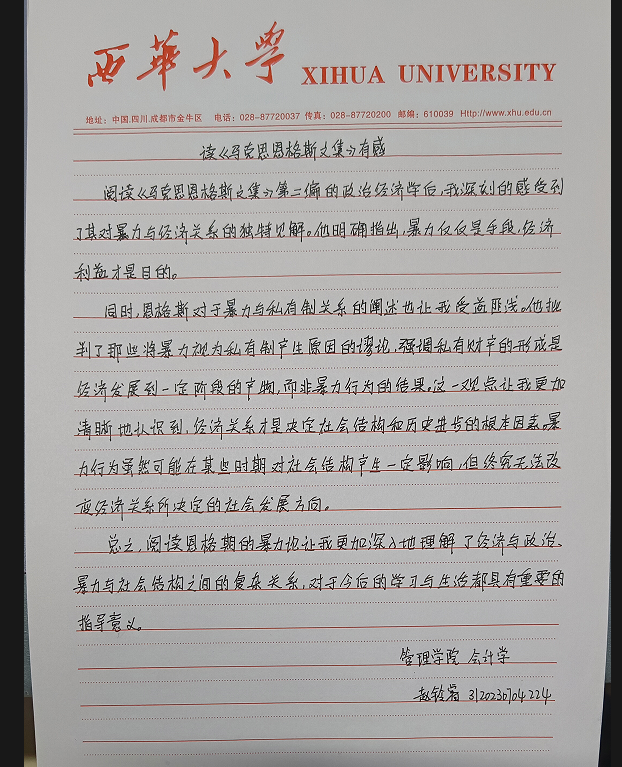 西華大學 XIHUA UNIVERSITY
地址：中国.四川.成都市金牛区 电话：028-87720037 传真：028-87720200 邮编：610039 Http://www.xhu.edu.cn
读《马克思恩格斯文集》有感
阅读《马克思恩格斯文集》第二编的政治经济学后，我深刻的感受到
了其对暴力与经济关系的独特见解。他明确指出，暴力仅仅是手段，经济
利益才是目的。
同时，恩格斯对于暴力与私有制关系的阐述也让我受益匪浅。他批
判了那些将暴力视为私有制产生原因的谬论，强调私有财产的形成是
经济发展到一定阶段的产物，而非暴力行为的结果。这一观点让我更加
清晰地认识到，经济关系才是决定社会结构和历史进步的根本因素。暴
力行为虽然可能在某些时期对社会结构产生一定影响，但终究无法改
变经济关系所决定的社会发展方向。
总之，阅读恩格斯的暴力论让我更加深入地理解了经济与政治、
暴力与社会结构之间的复杂关系，对于今后的学习与生活都具有重要的
指导意义。
管理学院 会计学
赵 3120230704224